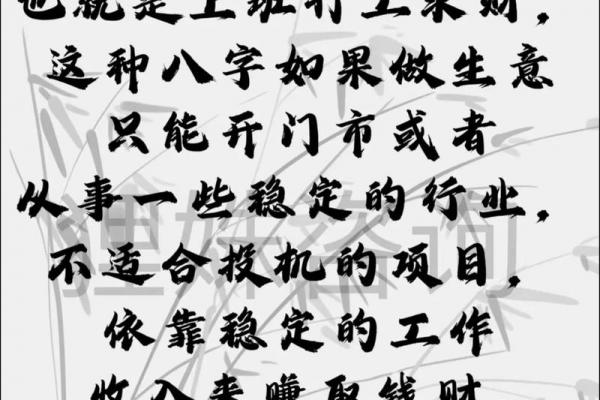 也就是上班打工求财，
这种八字如果做生意
只能开门市或者
从事一些稳定的行业，
不适合投机的项目，
依靠稳定的工作
收入来赚取钱财